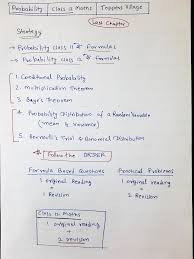 Probability Class 12 Maths Toppers Village
Last Chapter
Strategy
→ Probability class 11th Formulas
→ Probability class 12th Formulas
1. Conditional Probability
2. Multiplication Theorem
3. Baye's Theorem
4. Probability Distribution of a Random Variable
(mean & variance)
5. Bernoulli's Trial & Binomial Distribution
Follow the ORDER
Formula Based Questions
1 original reading
+
1 Revision
Practical Problems
1 original reading
+
2 Revision
Class 12 Maths
1 original reading
+
2 revision